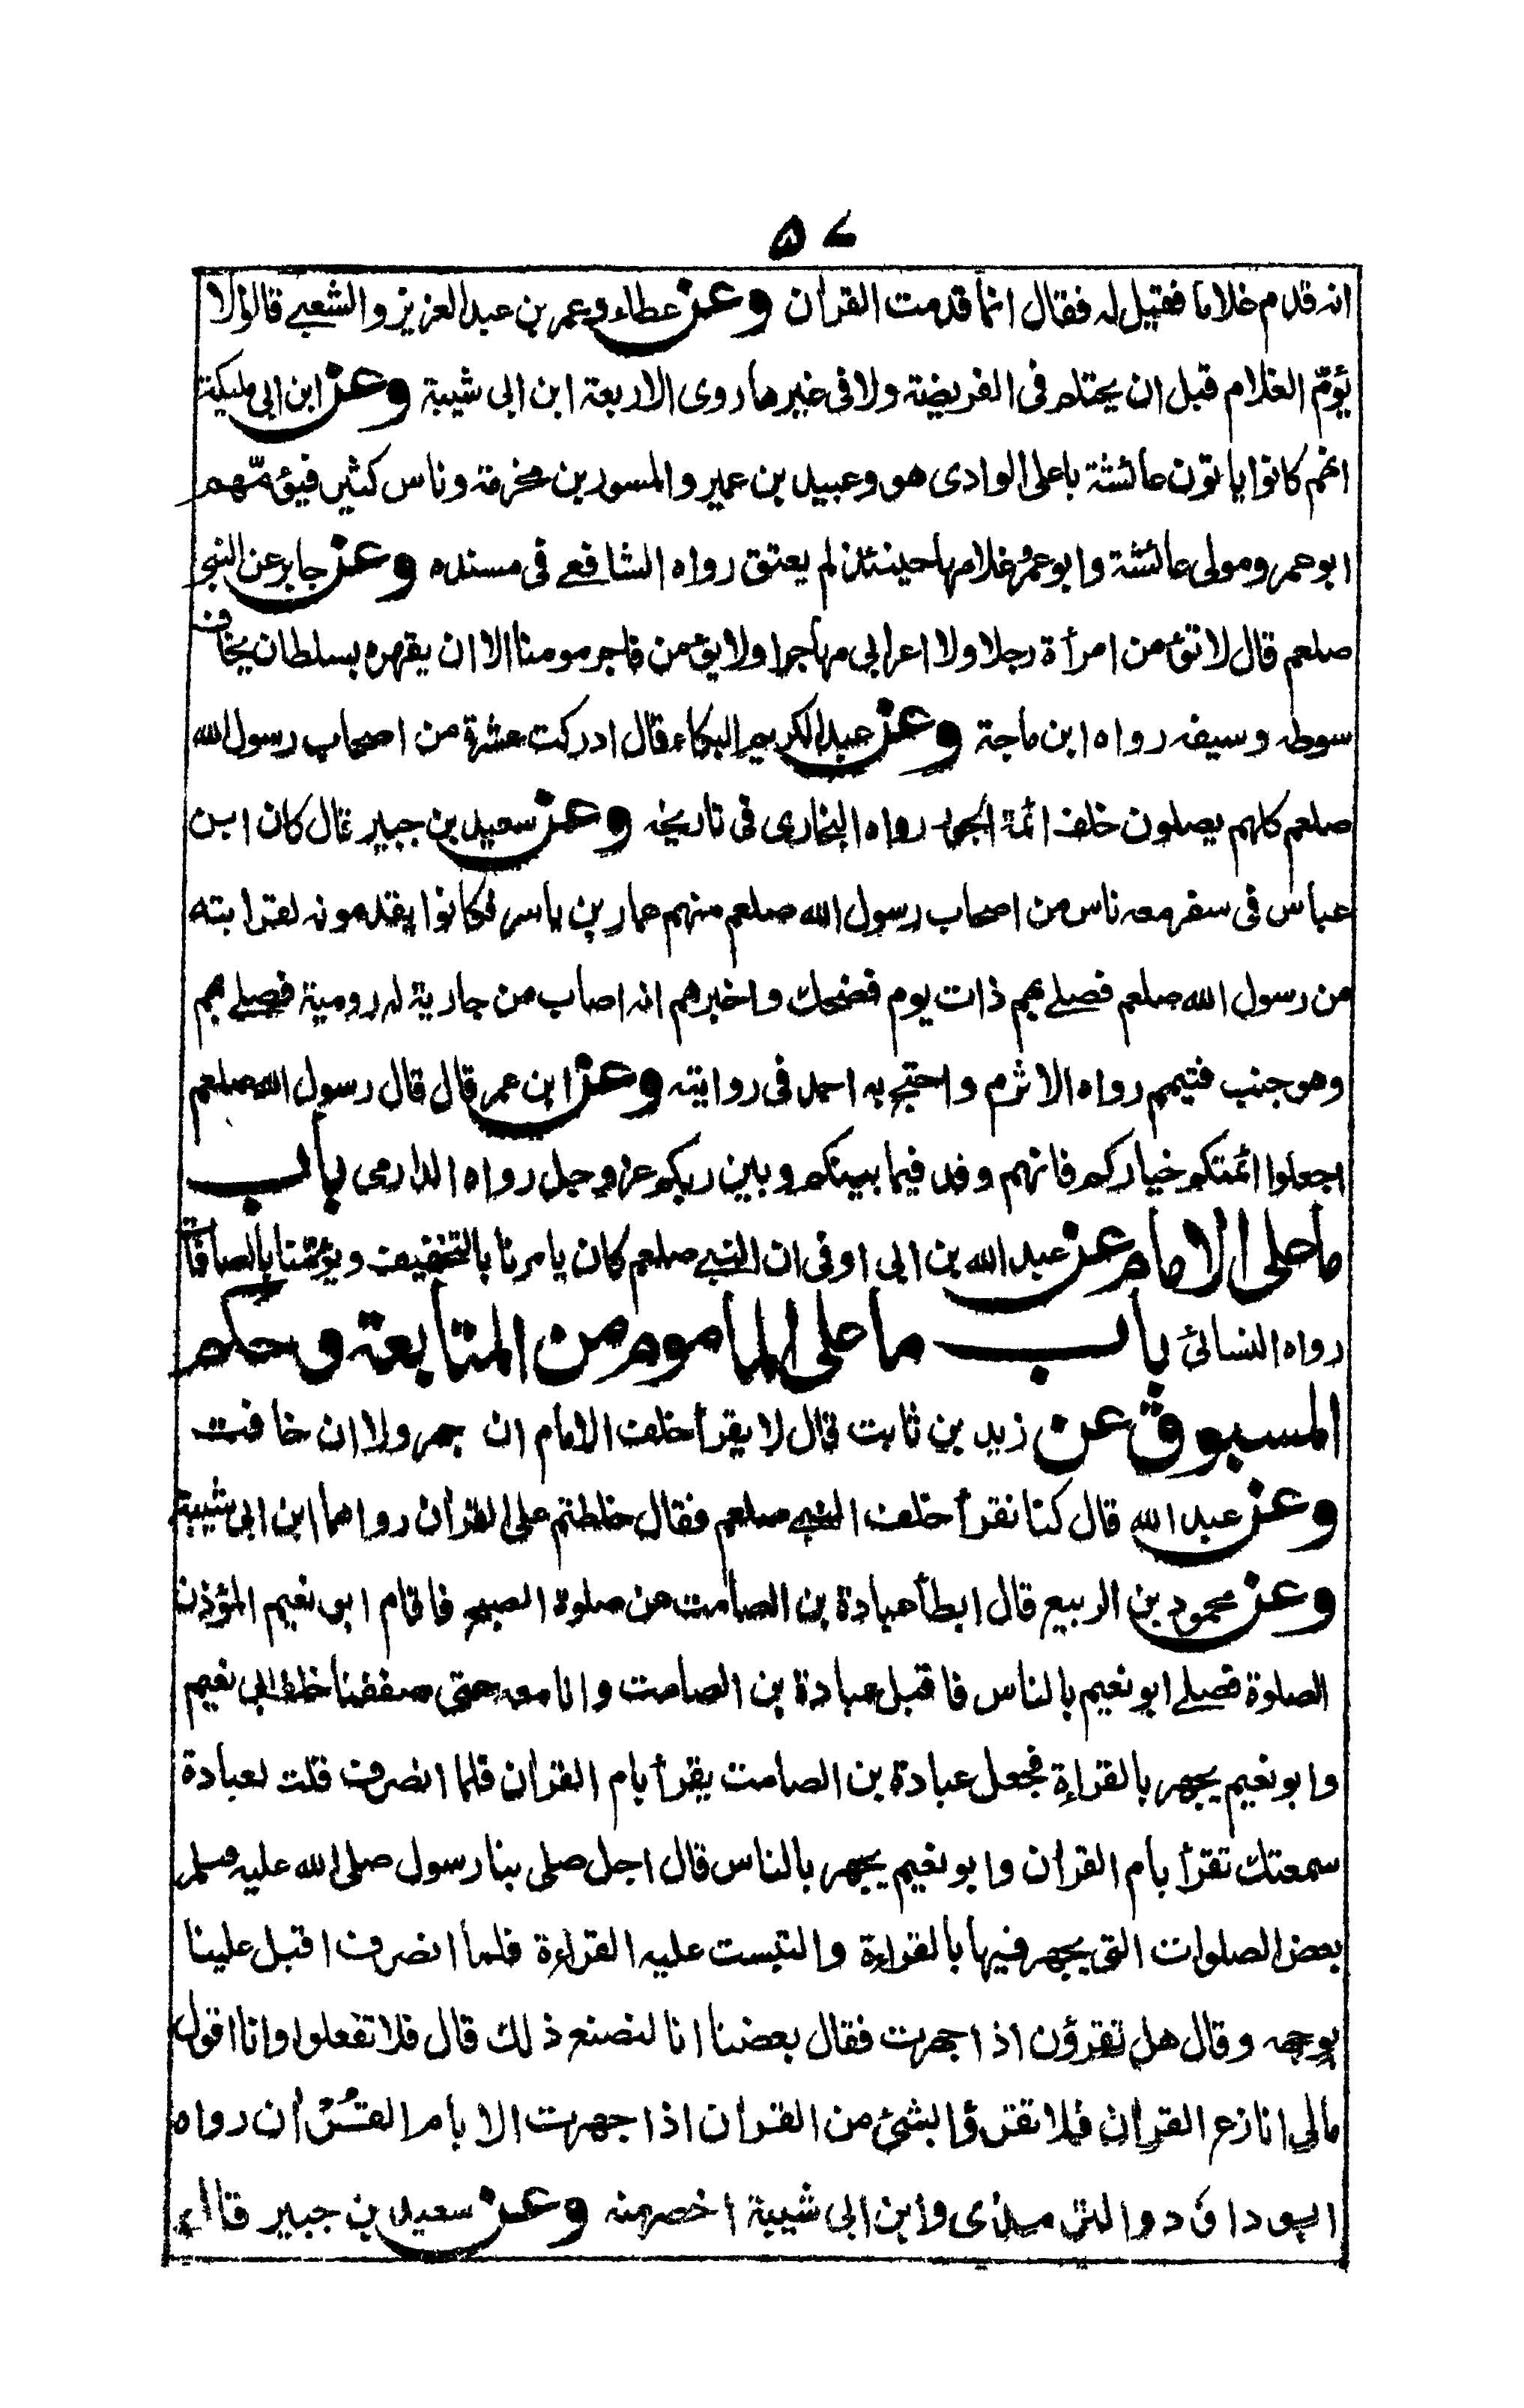 ۵۷
انه قدم غلاما فقيل له فقال انما قدمت القرأن وعن عطاء وعمر بن عبد العزيز والشعبي قالوا لا
يؤمّ الغلام قبل ان يحتلم فى الفريضة ولا فى غيرها روى الاربعة ابن ابى شيبة وعن ابن ابى مليكة
انهم كانوا ياتون عائشة باعلى الوادى هو وعبيد بن عمير والمسور بن مخرمة وناس كثير فيؤمّهم
ابو عمرو مولى عائشة وابو عمرو غلامها حينئذ لم يعتق رواه الشافعے فى مسنده وعن جابر عن النبى
صلعم قال لا تؤمن امرأة رجلا ولا اعرابى مهاجرا ولا يؤمن فاجر مومنا الا ان يقهره بسلطان يخاف
سوطه وسيفه رواه ابن ماجة وعن عبد الكريم البكاء قال ادركت عشرة من اصحاب رسول الله
صلعم كلهم يصلون خلف ائمة الجور رواه البخارى فى تاريخه وعن سعيد بن جبير قال كان ابن
عباس فى سفر معه ناس من اصحاب رسول الله صلعم منهم عمار بن ياسر فكانوا يقدمونه لقرابته
من رسول الله صلعم فصلے بهم ذات يوم فضحك واخبرهم انه اصاب من جارية له رومية فصلے بهم
وهو جنب فتيمم رواه الاثرم واحتج به احمد فى روايته وعن ابن عمر قال قال رسول الله صلعم
اجعلوا ائمتكم خياركم فانهم وفد فيما بينكم وبين ربكم عز وجل رواه الدارمى باب
ما على الامام عن عبد الله بن ابى اوفى ان النبے صلعم كان يامرنا بالتخفيف ويؤمّنا بالصافات
رواه النسائى باب ما على الماموم من المتابعة وحكم
المسبوق عن زيد بن ثابت قال لا يقرأ خلف الامام ان جهر ولا ان خافت
وعن عبد الله قال كنا نقرأ خلف النبے صلعم فقال خلطتم على القرأن رواهما ابن ابى شيبة
وعن محمود بن الربيع قال ابطأ عبادة بن الصامت عن صلوة الصبح فاقام ابو نعيم المؤذن
الصلوة فصلے ابو نعيم بالناس فاقبل عبادة بن الصامت وانا معه حتى صففنا خلف ابى نعيم
وابو نعيم يجهر بالقراءة فجعل عبادة بن الصامت يقرأ بام القرأن فلما انصرف قلت لعبادة
سمعتك تقرأ بام القرأن وابو نعيم يجهر بالناس قال اجل صلى بنا رسول صلى الله عليه وسلم
بعض الصلوات التى يجهر فيها بالقراءة والتبست عليه القراءة فلما انصرف اقبل علينا
بوجهه وقال هل تقرؤن اذا جهرت فقال بعضنا انا لنصنع ذلك قال فلا تفعلوا وانا اقول
مالى انازع القرأن فلا تقرؤا بشئ من القرأن اذا جهرت الا بام القرأن رواه
ابو داؤد والترمذى وابن ابى شيبة اخصر منه وعن سعيد بن جبير قال